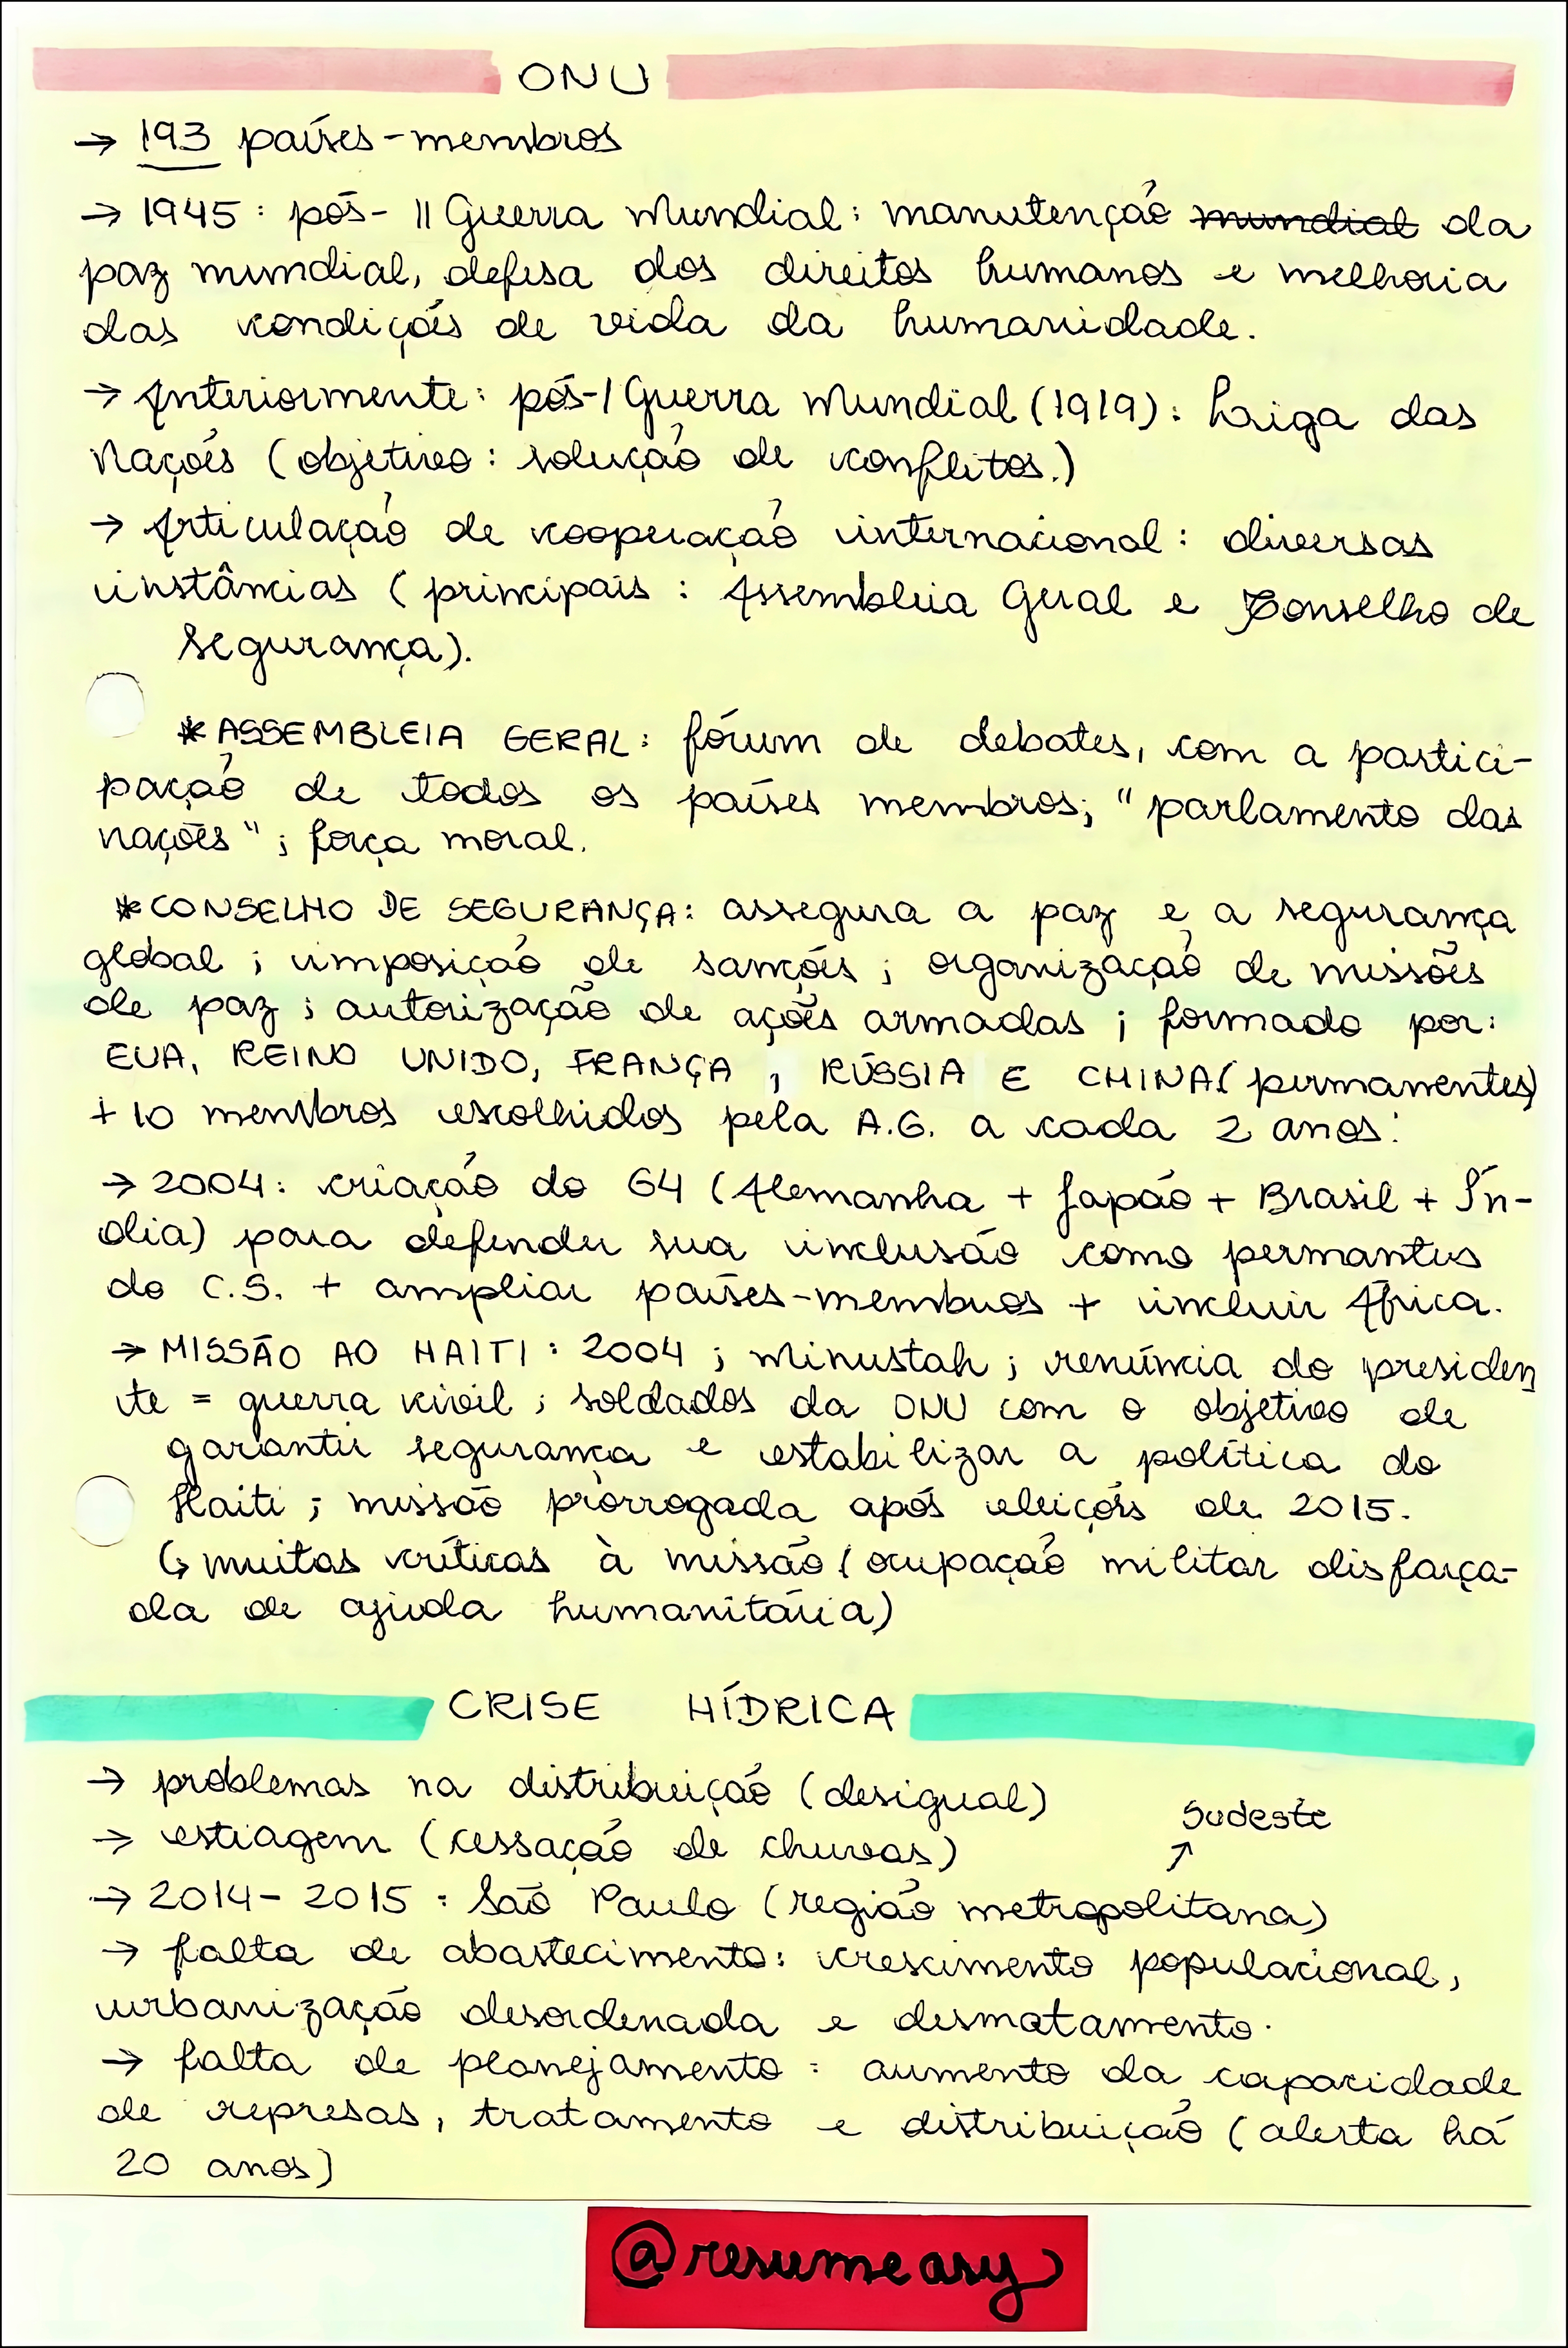 ONU
→ 193 países-membros
→ 1945: pós- II Guerra Mundial: manutenção mundial da
paz mundial, defesa dos direitos humanos e melhoria
das condições de vida da humanidade.
→ Anteriormente: pós-I Guerra Mundial (1919): Liga das
Nações (objetivo: solução de conflitos.)
→ Articulação de cooperação internacional: diversas
instâncias (principais: Assembleia Geral e Conselho de
Segurança).
*ASSEMBLEIA GERAL: fórum de debates, com a partici-
pação de todos os países membros; "parlamento das
nações"; força moral.
*CONSELHO DE SEGURANÇA: assegura a paz e a segurança
global; imposição de sanções; organização de missões
de paz; autorização de ações armadas; formado por:
EUA, REINO UNIDO, FRANÇA, RÚSSIA E CHINA (permanentes)
+ 10 membros escolhidos pela A.G. a cada 2 anos.
→ 2004: criação do G4 (Alemanha + Japão + Brasil + Ín-
dia) para defender sua inclusão como permantes
do C.S. + ampliar países-membros + incluir África.
→ MISSÃO AO HAITI: 2004; Minustah; renúncia do presiden
te = guerra civil; soldados da ONU com o objetivo de
garantir segurança e estabilizar a política do
Haiti; missão prorrogada após eleições de 2015.
↳ muitas críticas à missão (ocupação militar disfarça-
da de ajuda humanitária)
CRISE HÍDRICA
→ problemas na distribuição (desigual)
Sudeste
→ estiagem (cessação de chuvas) ↗
→ 2014- 2015: São Paulo (região metropolitana)
→ falta de abastecimento: crescimento populacional,
urbanização desordenada e desmatamento.
→ falta de planejamento: aumento da capacidade
de represas, tratamento e distribuição (alerta há
20 anos)
@resumeasy